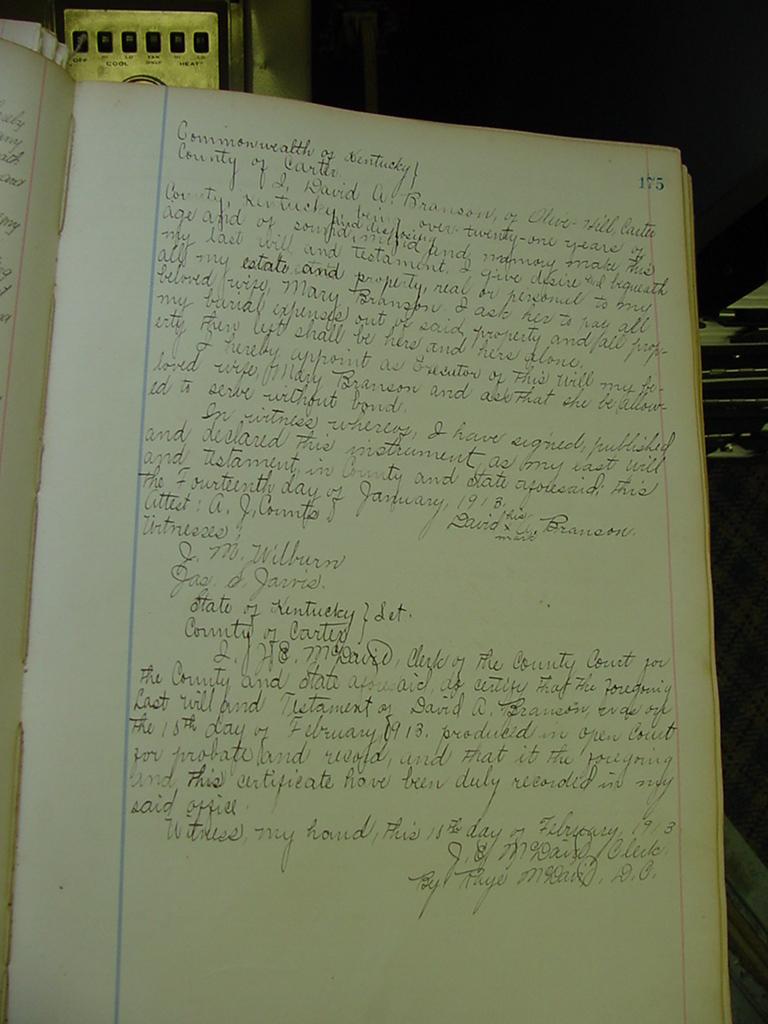 OFF HI LO FAN ONLY HI LO
COOL HEAT
175
Commonwealth of Kentucky }
County of Carter
I, David A. Branson, of Olive Hill, Carter
County, Kentucky, being over twenty-one years of
age and of sound, and disposing mind and memory make this
my last will and testament. I give desire and bequeath
all my estate and property, real or personel to my
beloved wife, Mary Branson. I ask her to pay all
my burial expenses out of said property and all prop-
erty then left shall be hers and hers alone.
I hereby appoint as Executor of this will my be-
loved wife, Mary Branson and ask that she be allow-
ed to serve without bond.
In witness whereof, I have signed, published
and declared this instrument, as my last will
and testament, in County and State aforesaid, this
the Fourteenth day of January, 1913.
Attest: A. J. Counts }
David his x mark A. Branson.
Witnesses:
J. M. Wilburn
Jas. S. Jarvis.
State of Kentucky } Sct.
County of Carter }
I, J. E. McDavid, Clerk of the County Court for
the County and State aforesaid, do certify that the foregoing
Last will and Testament of David A. Branson, was on
the 15th day of February, 1913. produced in open Court
for probate and record, and that it the foregoing
and this certificate have been duly recorded in my
said office.
Witness, my hand, this 15th day of February, 1913
J. E. McDavid, Clerk.
By Raye McDavid, D.C.